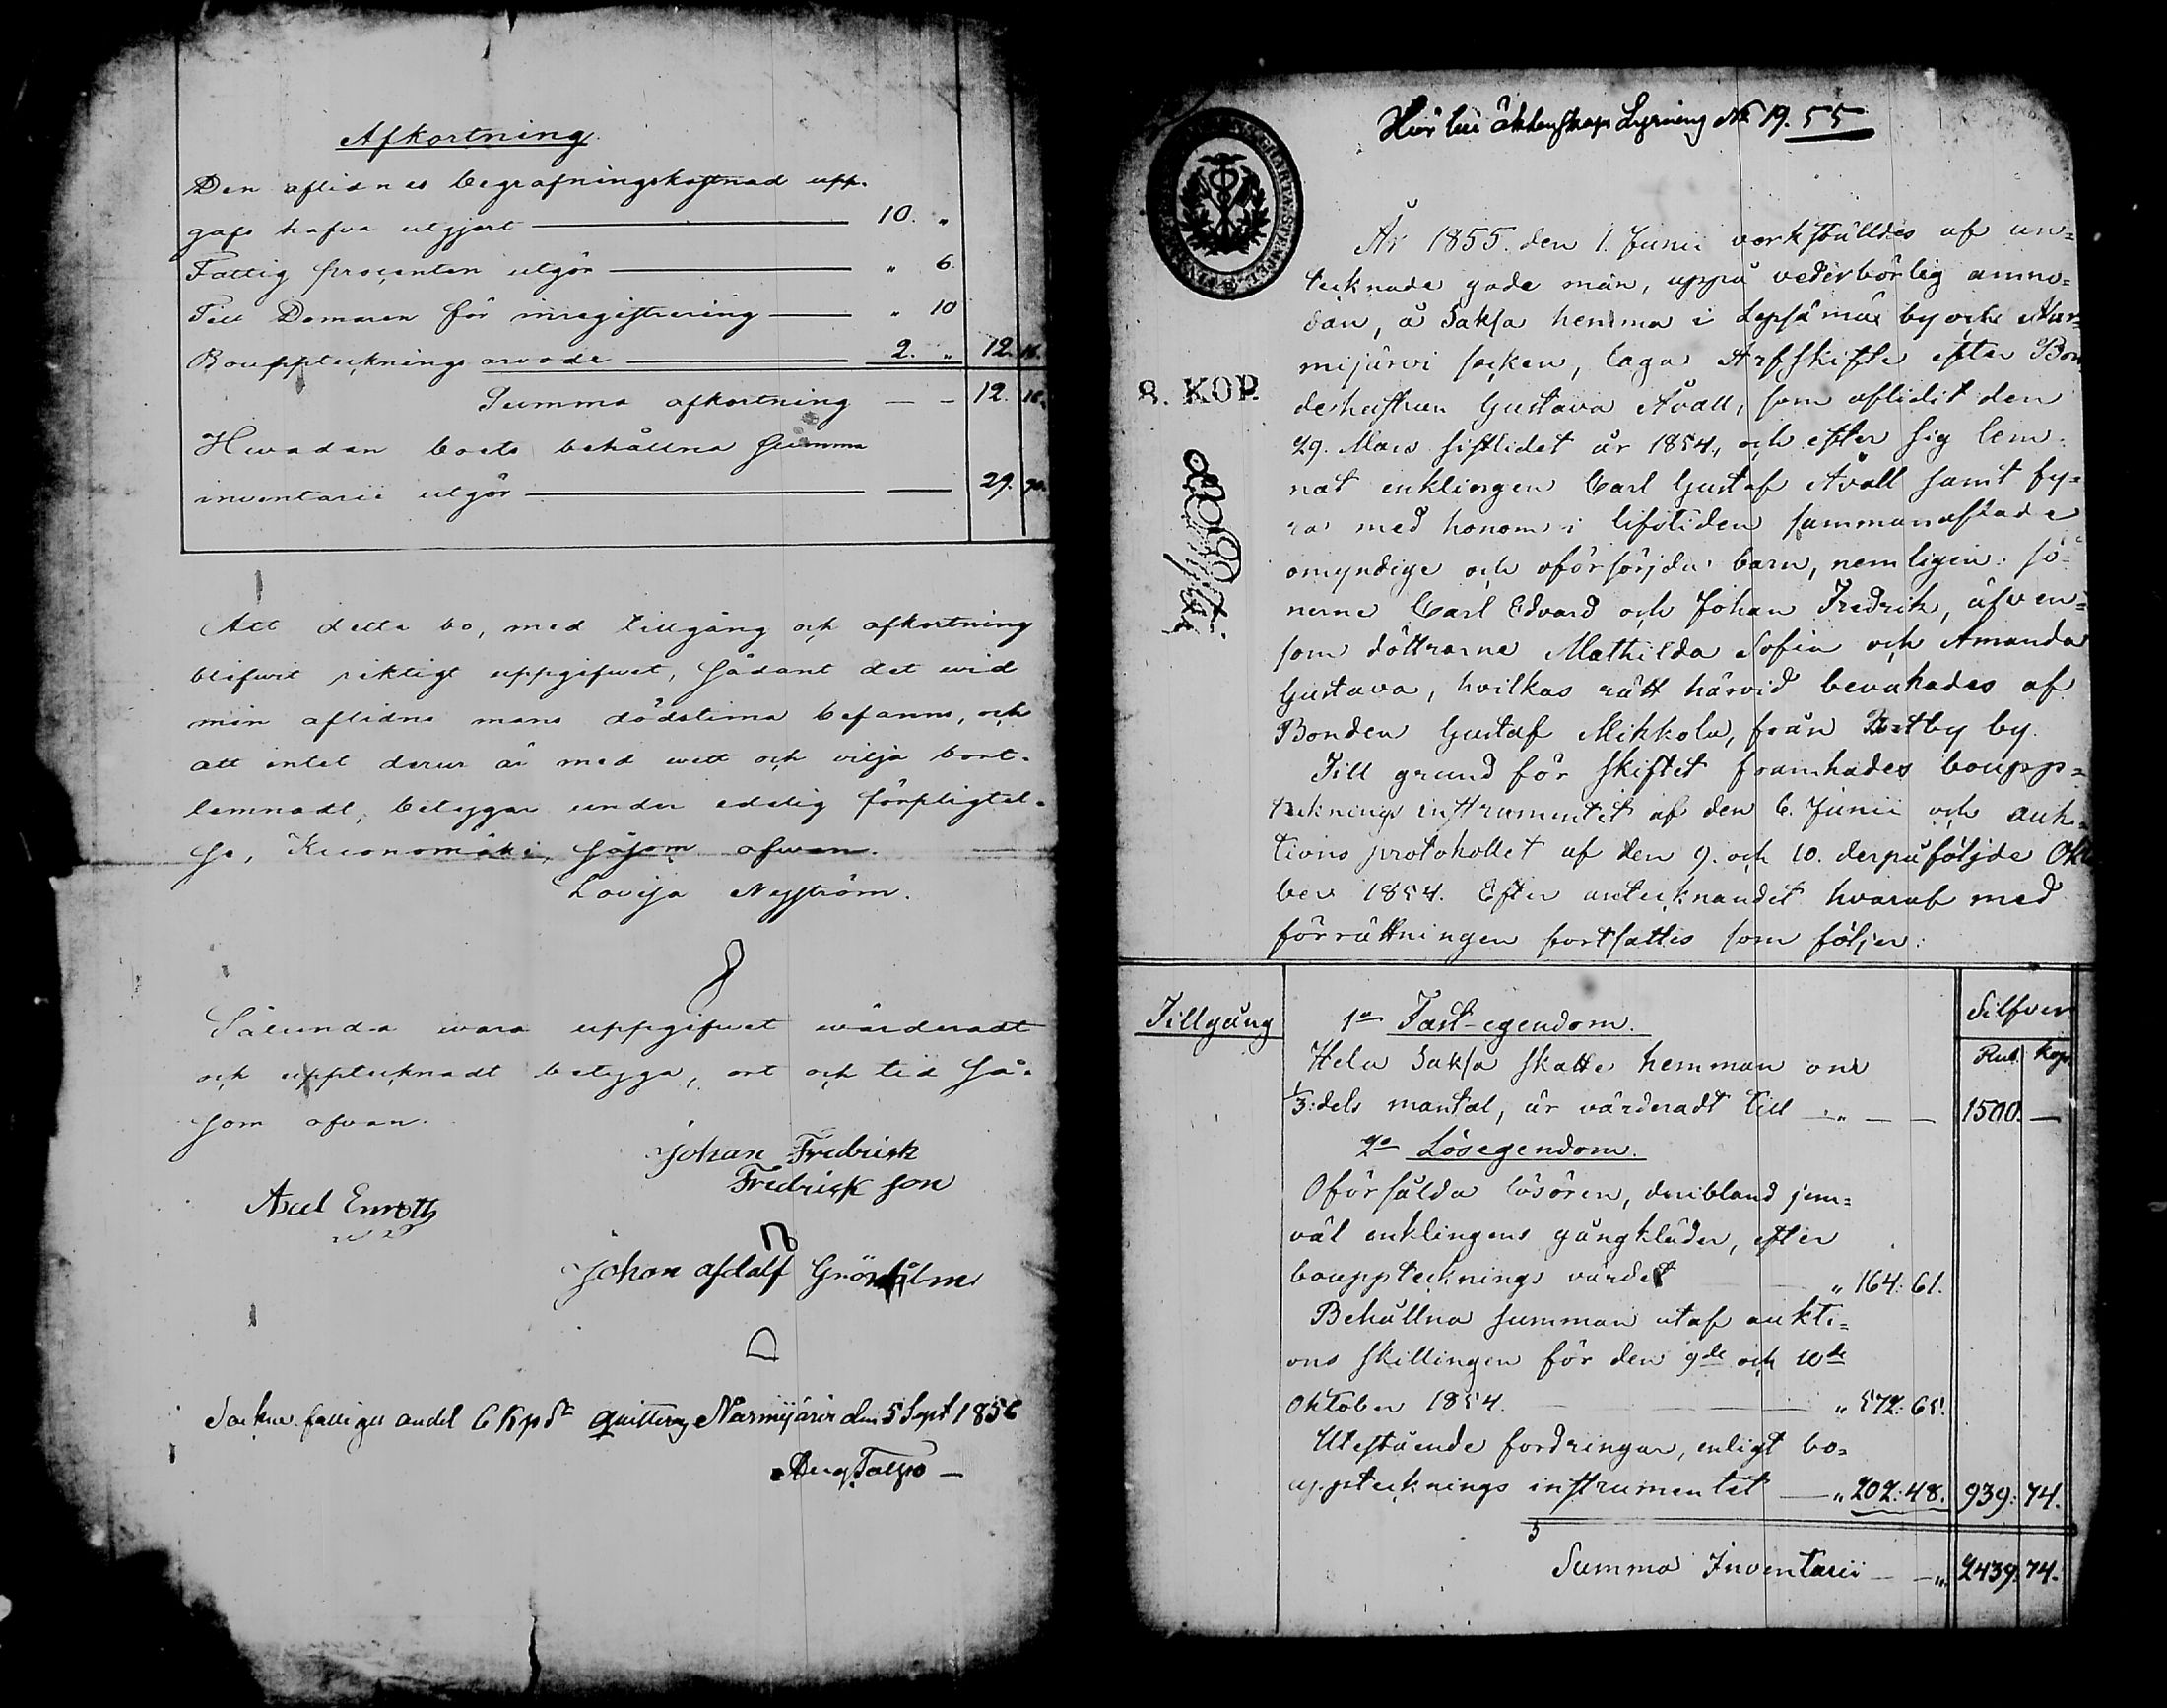 Afkortning.
Den aflidnes begrafningskostnad upp-
gafs hafva utgjort — 10. "
Fattig procenten utgör — " 6.
Till Domaren för inregistrering — " 10
Bouppteckningsarvode — 2. " 12. 16.
Summa afkortning — — 12. 16.
Hwadan boets behållna Summa
inventarii utgör — — 29. 90.
Att detta bo, med tillgång och afkortning
blifwit riktigt uppgifwet, sådant det wid
min aflidne mans dödstima befanns, och
att intet derur är med wett och vilja bort-
lemnadt, betygar under edelig förpligtel-
se, Kuonomäki, såsom ofwan.
Lovisa Nyström.
Sålunda wara uppgifwet wärderadt
och upptecknadt betyga, ort och tid så-
som ofvan.
Johan Fredrick
Fredrick son
Axel Enroth
Johan Adolf Grönholm
Socknefattiges andel 6 Kop Sr quitteras Nurmijärvi den 5 Sept 1856
8. KOP.
År 1855. den 1. Junii verkställdes af un-
tecknade gode män, uppå vederbörlig anmo-
dan, å Saksa hemma i Lepsämä by och Nur-
mijärvi socken, laga Arfskifte efter Bon
dehustrun Gustava Åvall, som aflidit den
29. Mars sistlidet år 1854, och efter sig lem-
nat enklingen Carl Gustaf Åvall samt fy-
ra med honom i lifstiden sammanaflade
omyndige och oförsörjda barn, nemligen: sö-
nerne Carl Edvard och Johan Fredrik, äfven-
som döttrarne Mathilda Sofia och Amanda
Gustava, hvilkas rätt härvid bevakades af
Bonden Gustaf Mikkola, från by.
Till grund för skiftet framhades boupp-
tecknings instrumentet af den 6. Junii och auk-
tions protokollet af den 9. och 10. derpåföljde Okto
ber 1854. Efter antecknandet hvaraf med
förrättningen fortsattes som följer:
Tillgång 1o Fast-egendom. Silfver
Hela Saksa skatte hemman om Rub. kop.
1/3:dels mantal, är värderadt till — " — — 1500. —
2o Lösegendom.
Oförsålda lösören, deribland jem-
väl enklingens gångkläder, efter
bouppteckningsvärdet " 164: 61.
Behållna summan utaf aukti-
ons skillingen för den 9de och 10de
Oktober 1854. — " 572: 65.
Utestående fordringar, enligt bo-
uppteckningsinstrumentet — " 202: 48. 939: 74.
Summa Inventarii — — " 2439. 74.